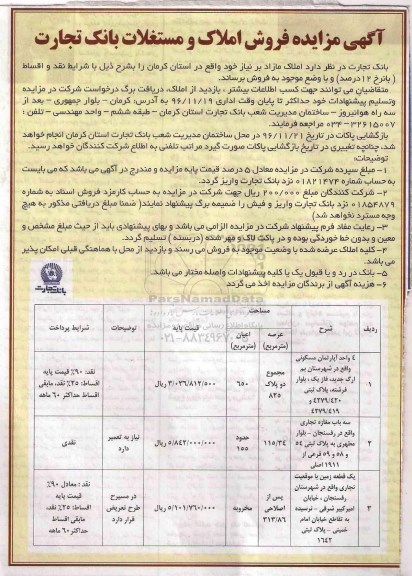 آگهی مزایده فروش املاک و مستغلات بانک تجارت
بانک تجارت در نظر دارد املاک مازاد بر نیاز خود واقع در استان کرمان را بشرح ذیل با شرایط نقد و اقساط
( بانرخ ۱۲درصد ) و با وضع موجود به فروش برساند.
متقاضیان می توانند جهت کسب اطلاعات بیشتر ، بازدید از املاک، دریافت برگ درخواست شرکت در مزایده
وتسلیم پیشنهادات خود حداکثر تا پایان وقت اداری ۹۶/۱۱/۱۹ به آدرس: کرمان – بلوار جمهوری – بعد از
سه راه هوانیروز – ساختمان مدیریت شعب بانک تجارت استان کرمان – طبقه ششم – واحد مهندسی – تلفن :
۳۲۲۶۱۵۰۰۷ – ۰۳۴ مراجعه فرمایند.
بازگشایی پاکات در تاریخ ۹۶/۱۱/۲۱ در محل ساختمان مدیریت شعب بانک تجارت استان کرمان انجام خواهد
شد، چنانچه تغییری در تاریخ بازگشایی پاکات صورت گیرد مراتب تلفنی به اطلاع شرکت کنندگان خواهد رسید.
توضیحات:
۱- مبلغ سپرده شرکت در مزایده معادل ۵ درصد قیمت پایه مزایده و مندرج در آگهی می باشد که می بایست
به حساب شماره ۰۱۸۲۱۴۷۳ نزد بانک تجارت واریز گردد.
۲- شرکت کنندگان مبلغ ۲۰۰/۰۰۰ ریال جهت شرکت در مزایده به حساب کارمزد فروش اسناد به شماره
۰۱۸۵۴۸۷۹ نزد بانک تجارت واریز و فیش را ضمیمه برگ پیشنهاد نمایند( ضمنا مبلغ دریافتی مذکور به هیچ
وجه مسترد نخواهد شد)
۳- رعایت مفاد فرم پیشنهاد شرکت در مزایده الزامی می باشد و بهای پیشنهادی باید از حیث مبلغ مشخص و
معین و بدون خط خوردگی بوده و در پاکت لاک و مهر شده (دربسته ) تسلیم گردد.
۴- کلیه املاک عرضه شده با وضعیت موجود به فروش می رسند و بازدید از محل با هماهنگی قبلی امکان پذیر
می باشد.
۵- بانک در رد و یا قبول یک یا کلیه پیشنهادات واصله مختار می باشد.
۶- هزینه آگهی از برندگان مزایده اخذ می گردد
بانک تجارت
ParsNamadData
۰۲۱-۸۸۳۴۹۶۷۰
ردیف
شرح
مساحت
عرصه (مترمربع)
اعیان (مترمربع)
قیمت پایه
توضیحات
شرایط پرداخت
۱
۴ واحد آپارتمان مسکونی
واقع در شهرستان بم
ارگ جدید، فاز یک ، بلوار
فرشته، پلاک ثبتی
۴۲۷۹/۴۲۰ و
۴۲۷۹/۴۱۹
مجموع
دو پلاک
۸۲۵
۶۵۰
۳/۰۳۶/۸۱۲/۵۰۰ ریال
نقد: ۹۰% قیمت پایه
اقساط: ۲۵% نقد، مابقی
اقساط حداکثر ۶۰ ماهه
۲
سه باب مغازه تجاری
واقع در رفسنجان – بلوار
مطهری به پلاک ثبتی ۵۴
و ۵۸ و ۵۹ فرعی از
۱۹۱۱ اصلی
۱۱۵/۳۴
حدود
۱۵۵
۵/۸۴۲/۰۰۰/۰۰۰ ریال
نیاز به تعمیر
دارد
نقدی
۳
یک قطعه زمین با موقعیت
تجاری واقع در شهرستان
رفسنجان ، خیابان
امیرکبیر شرقی – نرسیده
به تقاطع خیابان امام
خمینی – پلاک ثبتی
۱۶۴۲
پس از
اصلاحی
۳۱۳/۸۶
مخروبه
۵/۱۰۱/۷۶۰/۰۰۰ ریال
در مسیرح
طرح تعریض
قرار دارد
نقد : معادل ۹۰%
قیمت پایه
اقساط: ۲۵% نقد،
مابقی اقساط
حداکثر ۶۰ ماهه